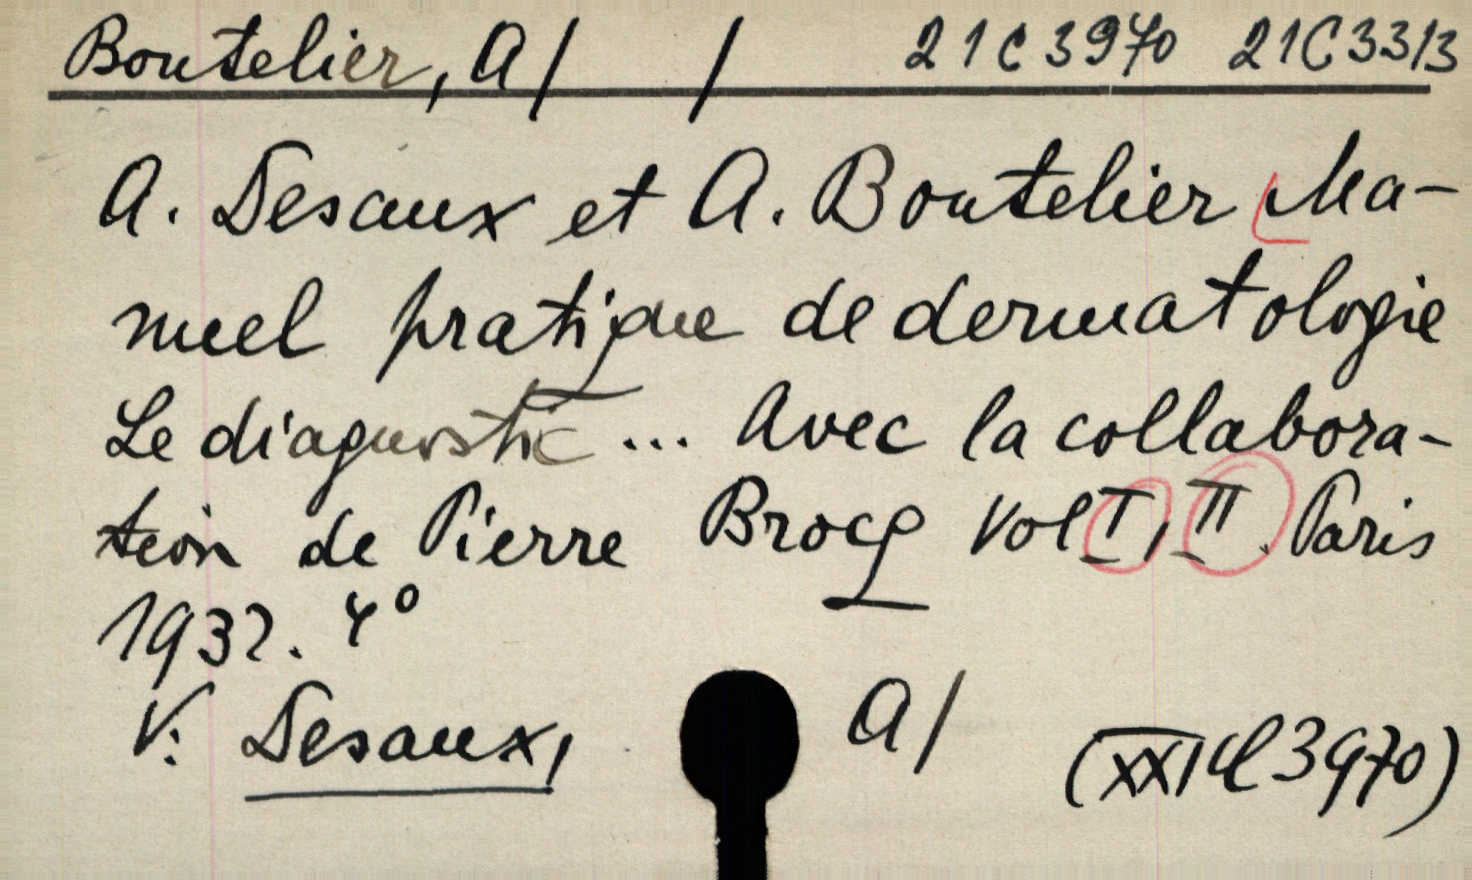 Boutelier, A/ / 21C3970 21C3313
A. Desaux et A. Boutelier Ma-
nuel pratique de dermatologie
Le diagnostic... Avec la collabora-
tion de Pierre Brocq Vol I, II. Paris
1932. 4°
V. Desaux, A/
(XXI C 3970)